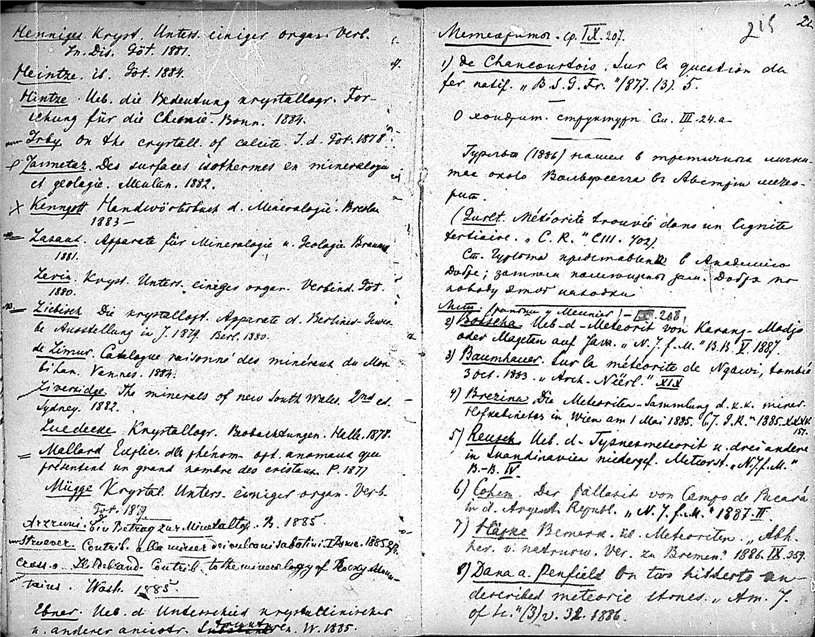 Henniges Kryst. Unters. einiger organ. Verb.
In. Dis. Göt. 1881.
Heintze. id. Göt. 1884.
Hintze. Ueb. die Bedeutung krystallogr. For-
schung für die Chemie. Bonn. 1884.
Irby. On the crystall. of calcite. I. d. Göt. 1878
Jannetaz. Des surfaces isothermes en mineralogie
et geologie. Meulan. 1882.
Kenngott Handwörterbuch d. Mineralogie. Breslau
1883
Lasaux. Apparate für Mineralogie u. Geologie
1881.
Levin. Kryst. Unters. einiges organ. Verbind. Göt.
1880.
Liebisch Die krystallogr. Apparate d. Berliner Gewer-
be Ausstellung in J. 1879. Berl. 1880.
de Limur. Catalogue raisonné des minéraux du Mor-
bihan. Vannes. 1884.
Liversidge. The minerals of new South Wales. 2nd ed.
Sydney. 1882.
Luedecke Krystallogr. Beobachtungen. Halle. 1878.
Mallard Explic. des phénom. opt. anomaux que
présentent un grand nombre des cristaux. P. 1877
Mügge Krystal. Unters. einiger organ. Verb.
Göt. 1879
Arzruni. Ein Betrag zur B. 1885
Struever. Contrib. alla miner dei vulcani sabatini I Roma. 1885
Cross a. Hillebrand. Contrib. to the mineralogy of Rocky Moun-
tains. Wash. 1885.
Ebner. Ueb. d. Unterschied krystallinischer
u. anderer anisotr. W. 1885.
215
Метеориты. ср. IX. 207.
1) de Chancourtois. Sur la question du
fer natif. „B. S. G. Fr." 1877. (3). 5.
О хондрит. структуре См. III. 24. а
Гурльт (1886) нашел в третичных лигни-
тах около Вольфсегга в Австрии метео-
рит.
(Gurlt. Météorite trouvée dans un lignite
tertiaire. „C. R." CIII. 702)
Ст. Гурльта представлена в Академию
Добре; затем помещены зам. Добрэ по
поводу этой находки
Мет. Meunier) 208.
2) Ueb. d. Meteorit von Karang-Modjo
oder Magetan auf Java. „N. J. f. M." B. B. V. 1887.
3) Baumhauer. Sur la météorite de Ngawi, tombée
3 oct. 1883. „Arch. Néerl." XIX
4) Brezina Die Meteoriten-Sammlung d. k. k. miner.
Hofkabinetes in Wien am 1 Mai 1885. 1885.
151.
5) Reusch Ueb. d. Tysnesmeteorit u. drei andere
in Skandinavien niedergef. Meteorst. „N. J. f. M."
B.-B. IV
6) Cohen. Der Pallasit von Campo de Pucará
in d. Argent Republ. „N. J. f. M." 1887. II.
7) Häpke üb. Meteoriten. „Abh.
her. v. naturw. Ver. zu Bremen." 1886. IX. 359.
8) Dana a. Penfield On two hitherto un-
described meteoric stones. „Am. J.
of Sc." (3) v. 32. 1886.